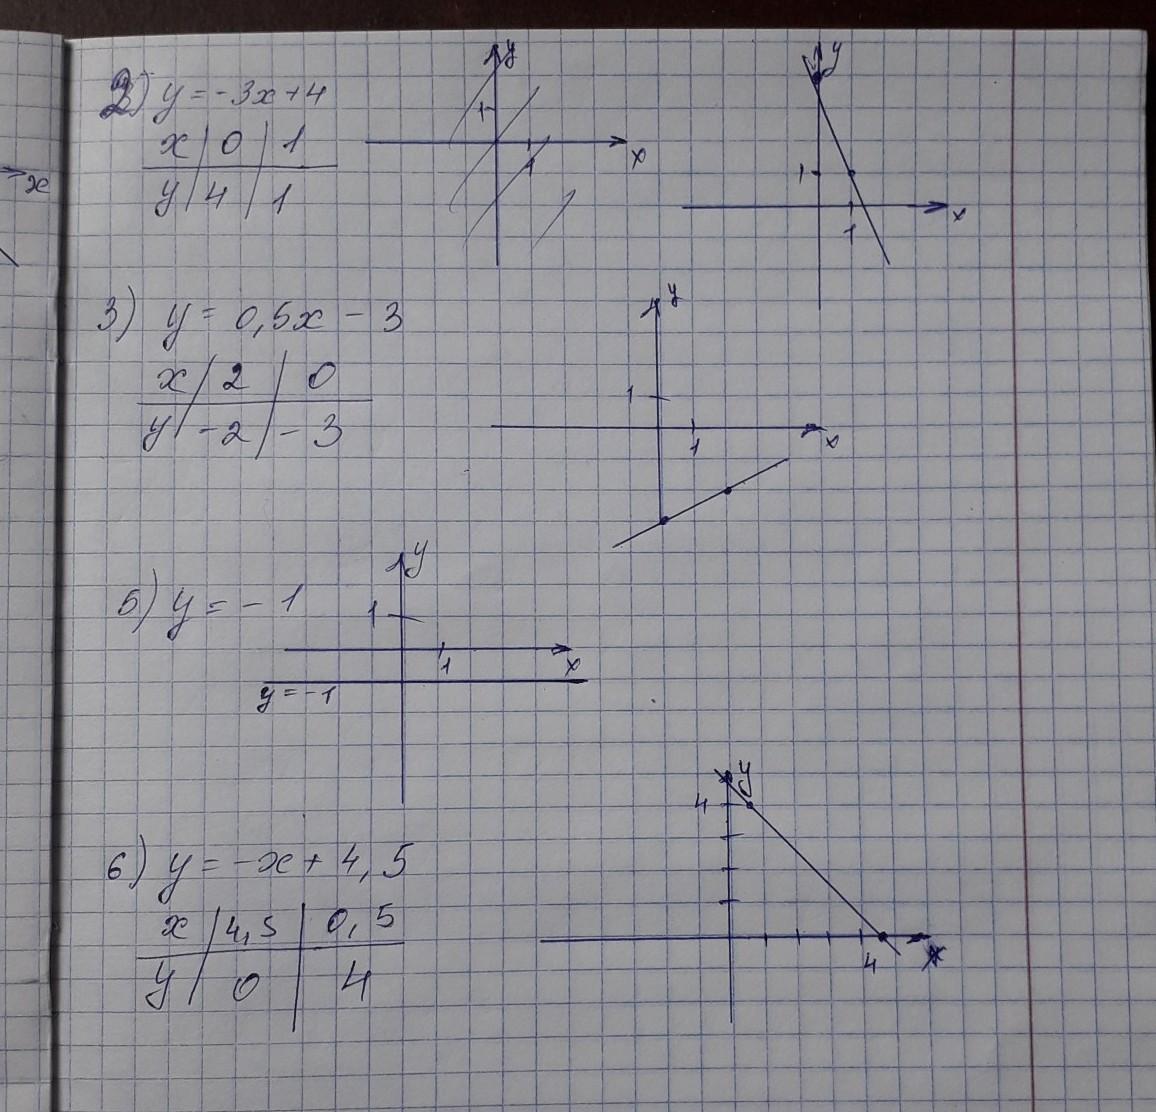 2) y = -3x+4
x | 0 | 1
y | 4 | 1
y
1
1
x
y
1
1
x
x
3) y = 0,5x - 3
x | 2 | 0
y | -2 | -3
y
1
1
x
5) y = -1
y
1
1
x
y = -1
6) y = -x + 4,5
x | 4,5 | 0,5
y | 0 | 4
y
4
4
x